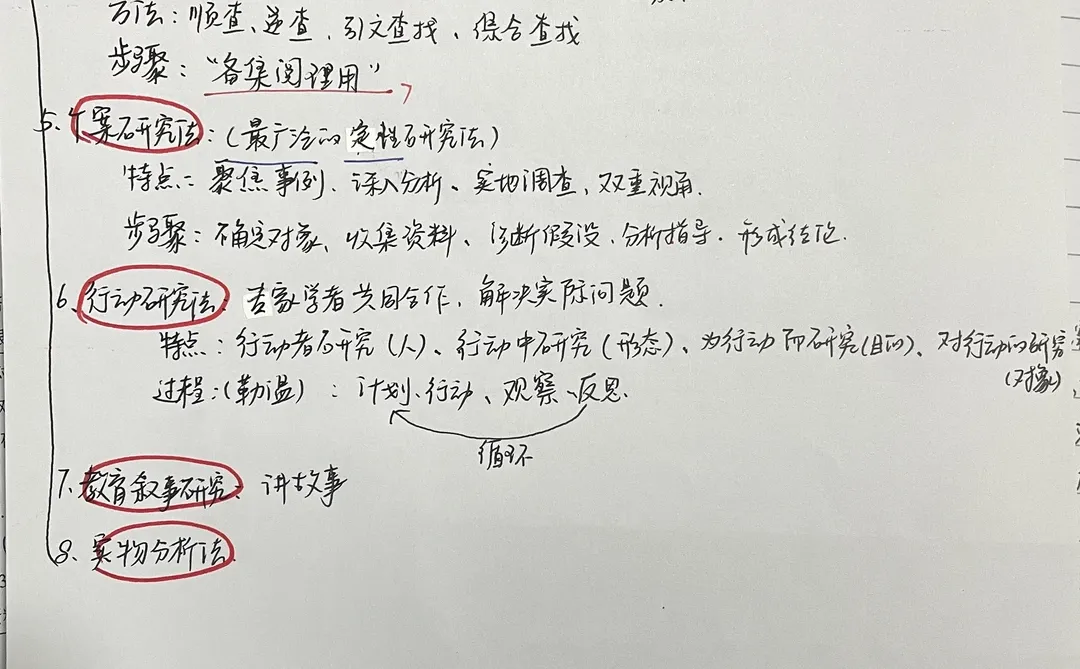 方法：顺查、逆查、引文查找、综合查找
步骤："备集阅理用"
5、个案研究法：（最广泛的定性研究法）
特点：聚焦事例、深入分析、实地调查、双重视角.
步骤：确定对象、收集资料、诊断假设、分析指导、形成结论.
6、行动研究法：专家学者共同合作，解决实际问题.
特点：行动者研究（人）、行动中研究（形态）、为行动而研究（目的）、对行动的研究
（对象）
过程：（勒温）：计划、行动、观察、反思.
循环
7、教育叙事研究：讲故事
8、实物分析法.